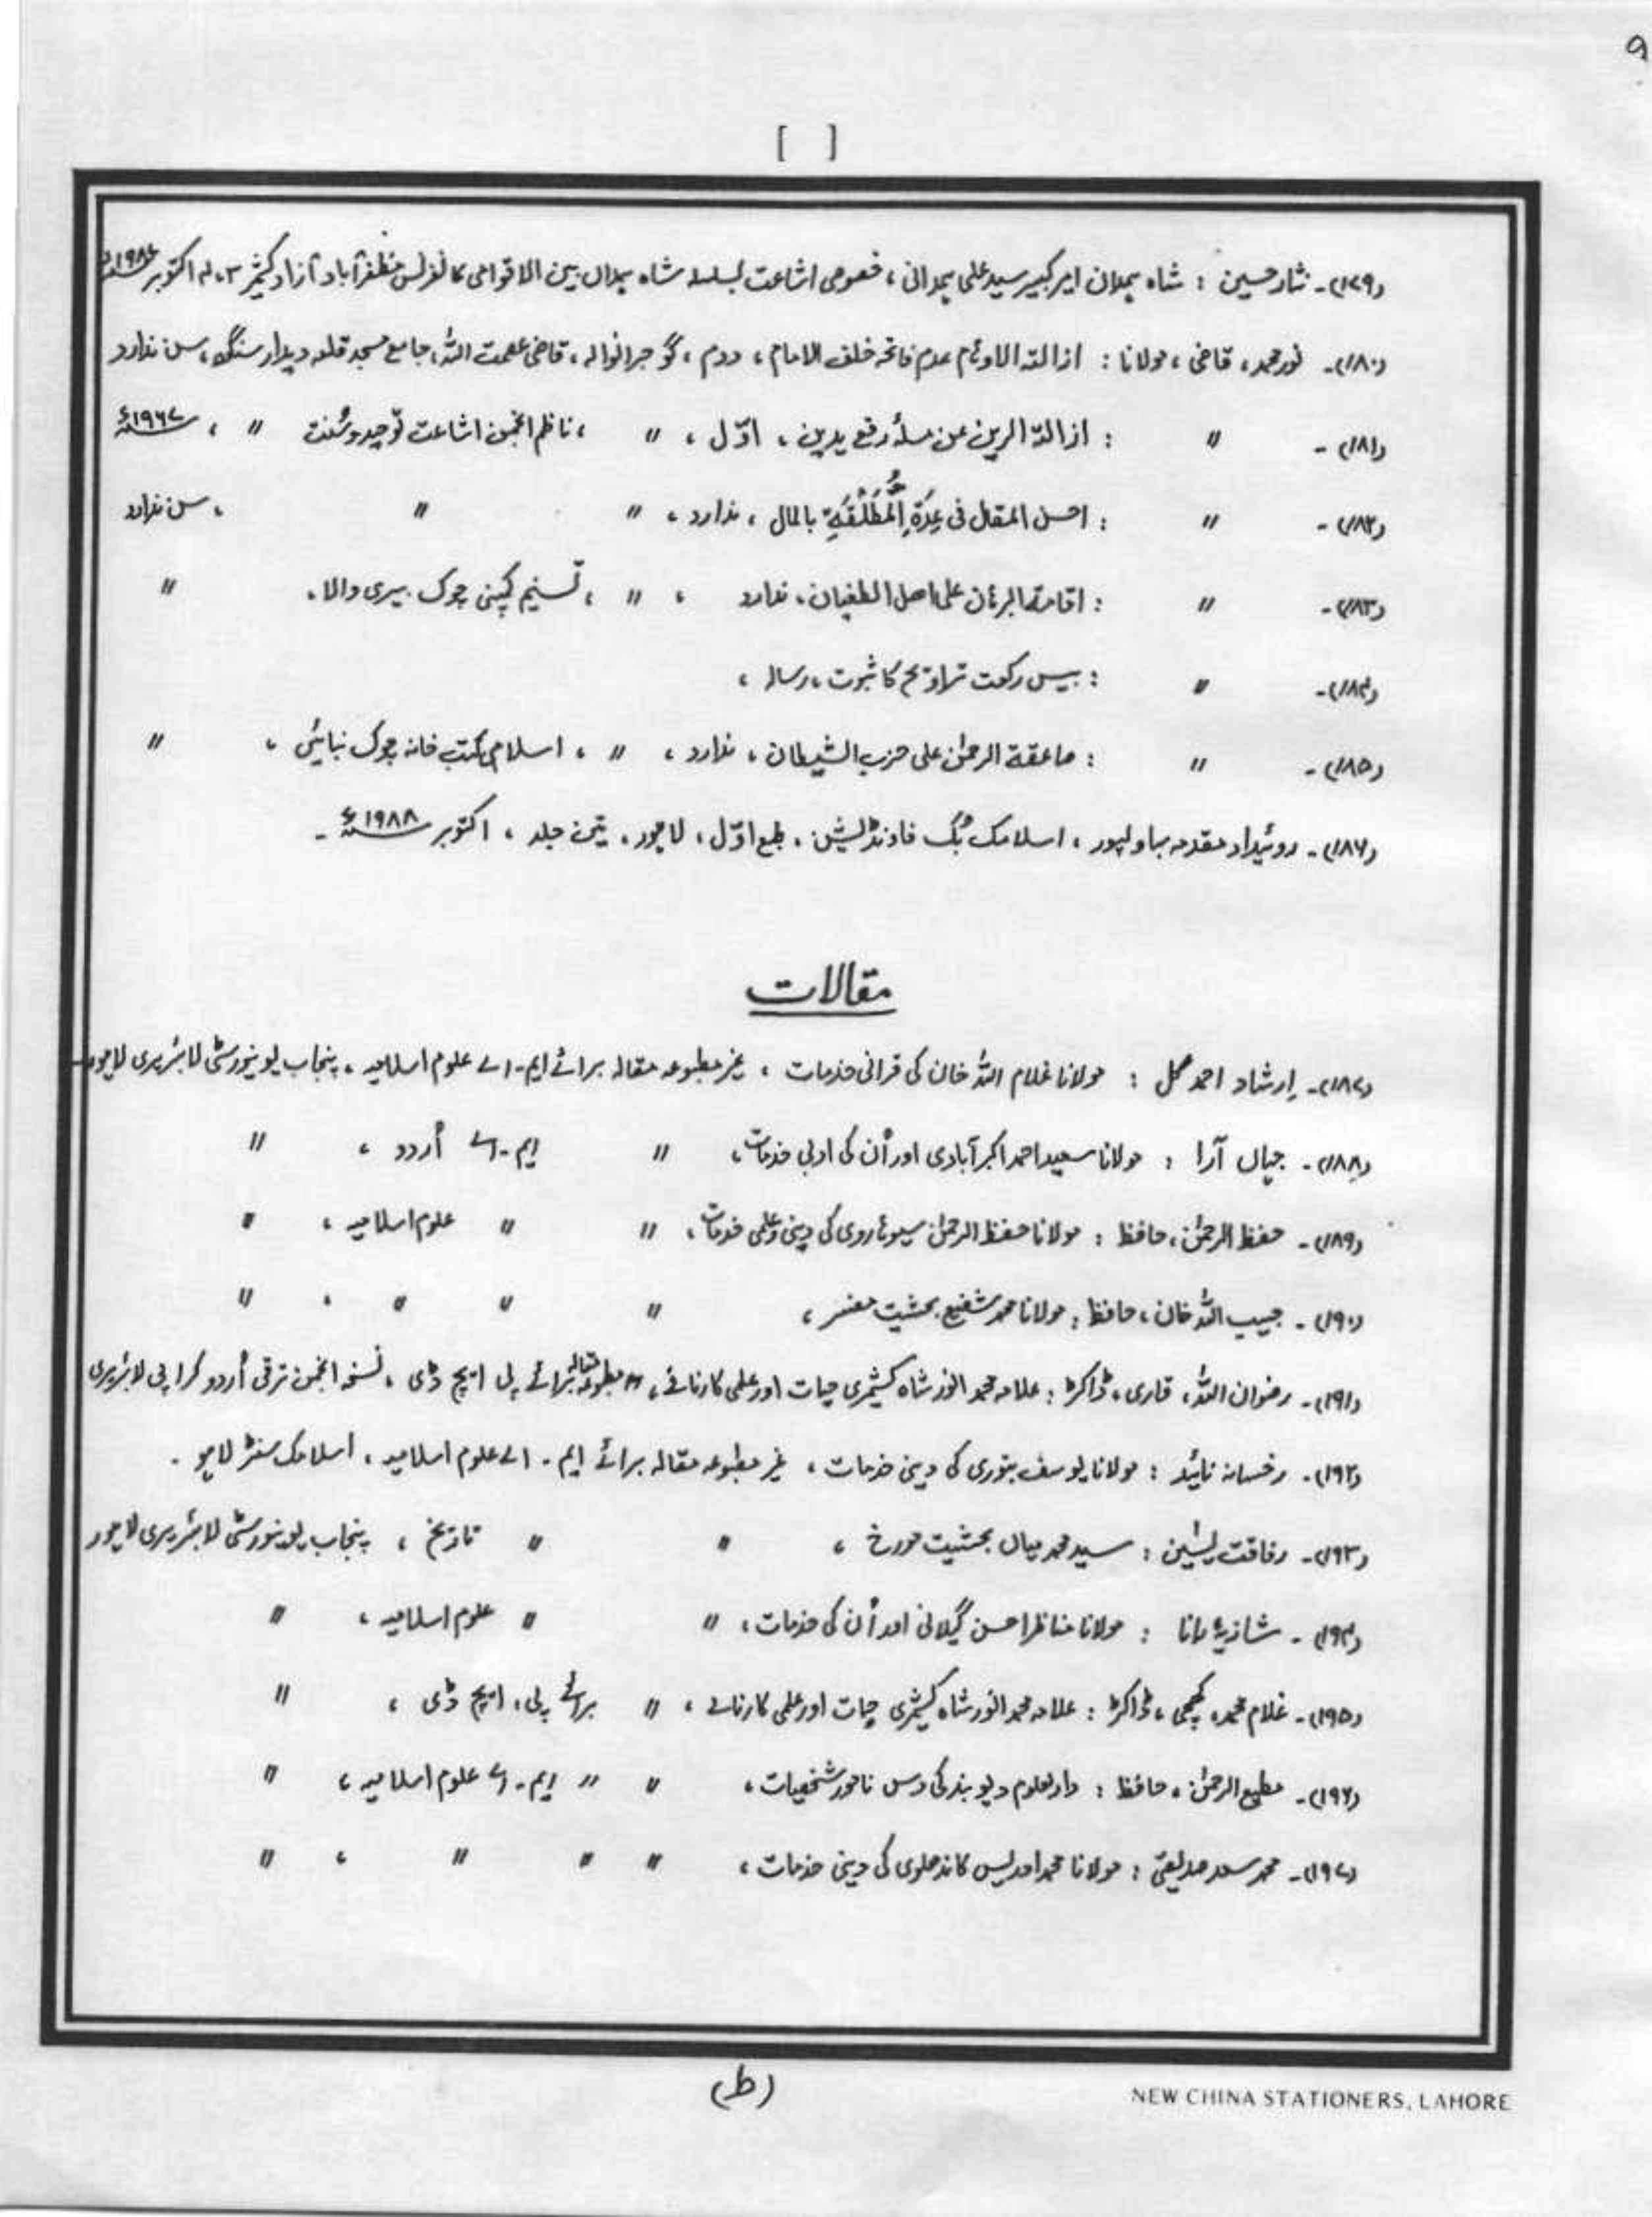 ۹
[ ]
(۱۷۹)۔ نثار حسین : شاہ ہمدان امیر کبیر سید علی ہمدانی ، خصوصی اشاعت بسلسلہ شاہ ہمدان بین الاقوامی کانفرنس مظفرآباد آزاد کشمیر ۳، ۴ اکتوبر ۱۹۸۷ء
(۱۸۰)۔ نور محمد ، قاضی ، مولانا : ازالۃ الاوہام عدم فاتحہ خلف الامام ، دوم ، گوجرانوالہ ، قاضی عصمت اللہ ، جامع مسجد قلعہ دیدار سنگھ ، سن ندارد
(۱۸۱)۔ 〃 : ازالۃ الرین عن مسلۂ رفع یدین ، اوّل ، 〃 ، ناظم انجمن اشاعت توحید و سُنت 〃 ، ۱۹۶۷ء
(۱۸۲)۔ 〃 : احسن المقال فی عِدَّۃِ الْمُطَلَّقَۃِ بالمال ، ندارد ، 〃 〃 ، سن ندارد
(۱۸۳)۔ 〃 : اقامۃ البرہان علی اھل الطغیان ، ندارد ، 〃 ، تسنیم کمپنی چوک بیری والا ، 〃
(۱۸۴)۔ 〃 : بیس رکعت تراویح کا ثبوت ، رسالہ ،
(۱۸۵)۔ 〃 : صاعقۃ الرحمٰن علی حزب الشیطان ، ندارد ، 〃 ، اسلامی کتب خانہ چوک نیائیں ، 〃
(۱۸۶)۔ روئیداد مقدمہ بہاولپور ، اسلامک بُک فاونڈیشن ، طبع اوّل ، لاہور ، تین جلد ، اکتوبر ۱۹۸۸ء ۔
مقالات
(۱۸۷)۔ اِرشاد احمد گل : مولانا غلام اللہ خان کی قرانی خدمات ، غیر مطبوعہ مقالہ برائے ایم ۔ اے علوم اسلامیہ ، پنجاب یونیورسٹی لائبریری لاہور
(۱۸۸)۔ جہاں آرا : مولانا سعید احمد اکبر آبادی اور اُن کی ادبی خدمات ، 〃 ایم ۔ اے اُردو ، 〃
(۱۸۹)۔ حفظ الرحمٰن ، حافظ : مولانا حفظ الرحمٰن سیوہاروی کی دینی و علمی خدمات ، 〃 〃 علوم اسلامیہ ، 〃
(۱۹۰)۔ حبیب اللہ خان ، حافظ : مولانا محمد شفیع بحثیت مفسر ، 〃 〃 〃 ، 〃
(۱۹۱)۔ رضوان اللہ ، قاری ، ڈاکٹر : علامہ محمد انور شاہ کشمیری حیات اور علمی کارنامے ، مطبوعہ مقالہ برائے پی ایچ ڈی ، نسخہ انجمن ترقی اُردو کراچی لائبریری
(۱۹۲)۔ رخسانہ نائید : مولانا یوسف بنوری کی دینی خدمات ، غیر مطبوعہ مقالہ برائے ایم ۔ اے علوم اسلامیہ ، اسلامک سنٹر لاہور ۔
(۱۹۳)۔ رفاقت یٰسین : سید محمد میاں بحثیت مورخ ، 〃 〃 تاریخ ، پنجاب یونیورسٹی لائبریری لاہور
(۱۹۴)۔ شازیہ رانا : مولانا مناظر احسن گیلانی اور اُن کی خدمات ، 〃 〃 علوم اسلامیہ ، 〃
(۱۹۵)۔ غلام محمد ، ڈاکٹر : علامہ محمد انور شاہ کشمیری حیات اور علمی کارنامے ، 〃 برائے پی ، ایچ ڈی ، 〃
(۱۹۶)۔ مطیع الرحمٰن ، حافظ : دارلعلوم دیوبند کی دس نامور شخصیات ، 〃 〃 ایم ۔ اے علوم اسلامیہ ، 〃
(۱۹۷)۔ محمد سعد صدیقی : مولانا محمد ادریس کاندھلوی کی دینی خدمات ، 〃 〃 〃 ، 〃
(ط)
NEW CHINA STATIONERS, LAHORE